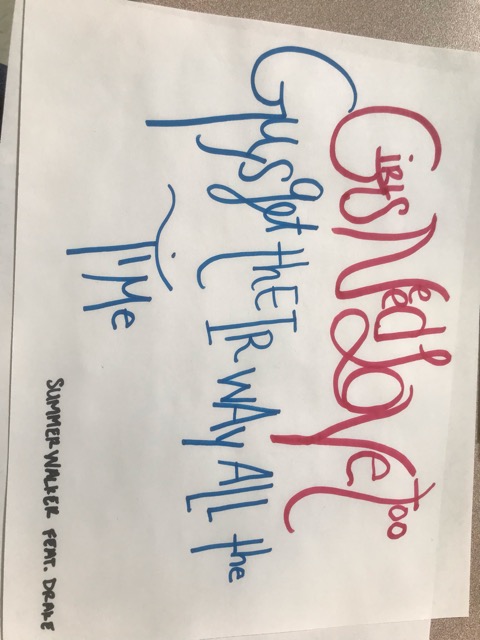 GIRLS Need Love too
Guys get thEIR WAY ALL the
TIMe
SUMMER WALKER FEAT. DRAKE